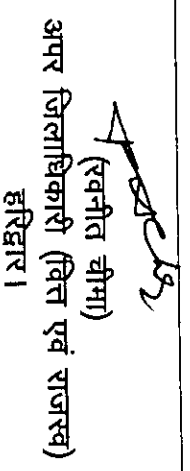 (रवनीत चीमा)
अपर जिलाधिकारी (वित्त एवं राजस्व)
हरिद्वार।